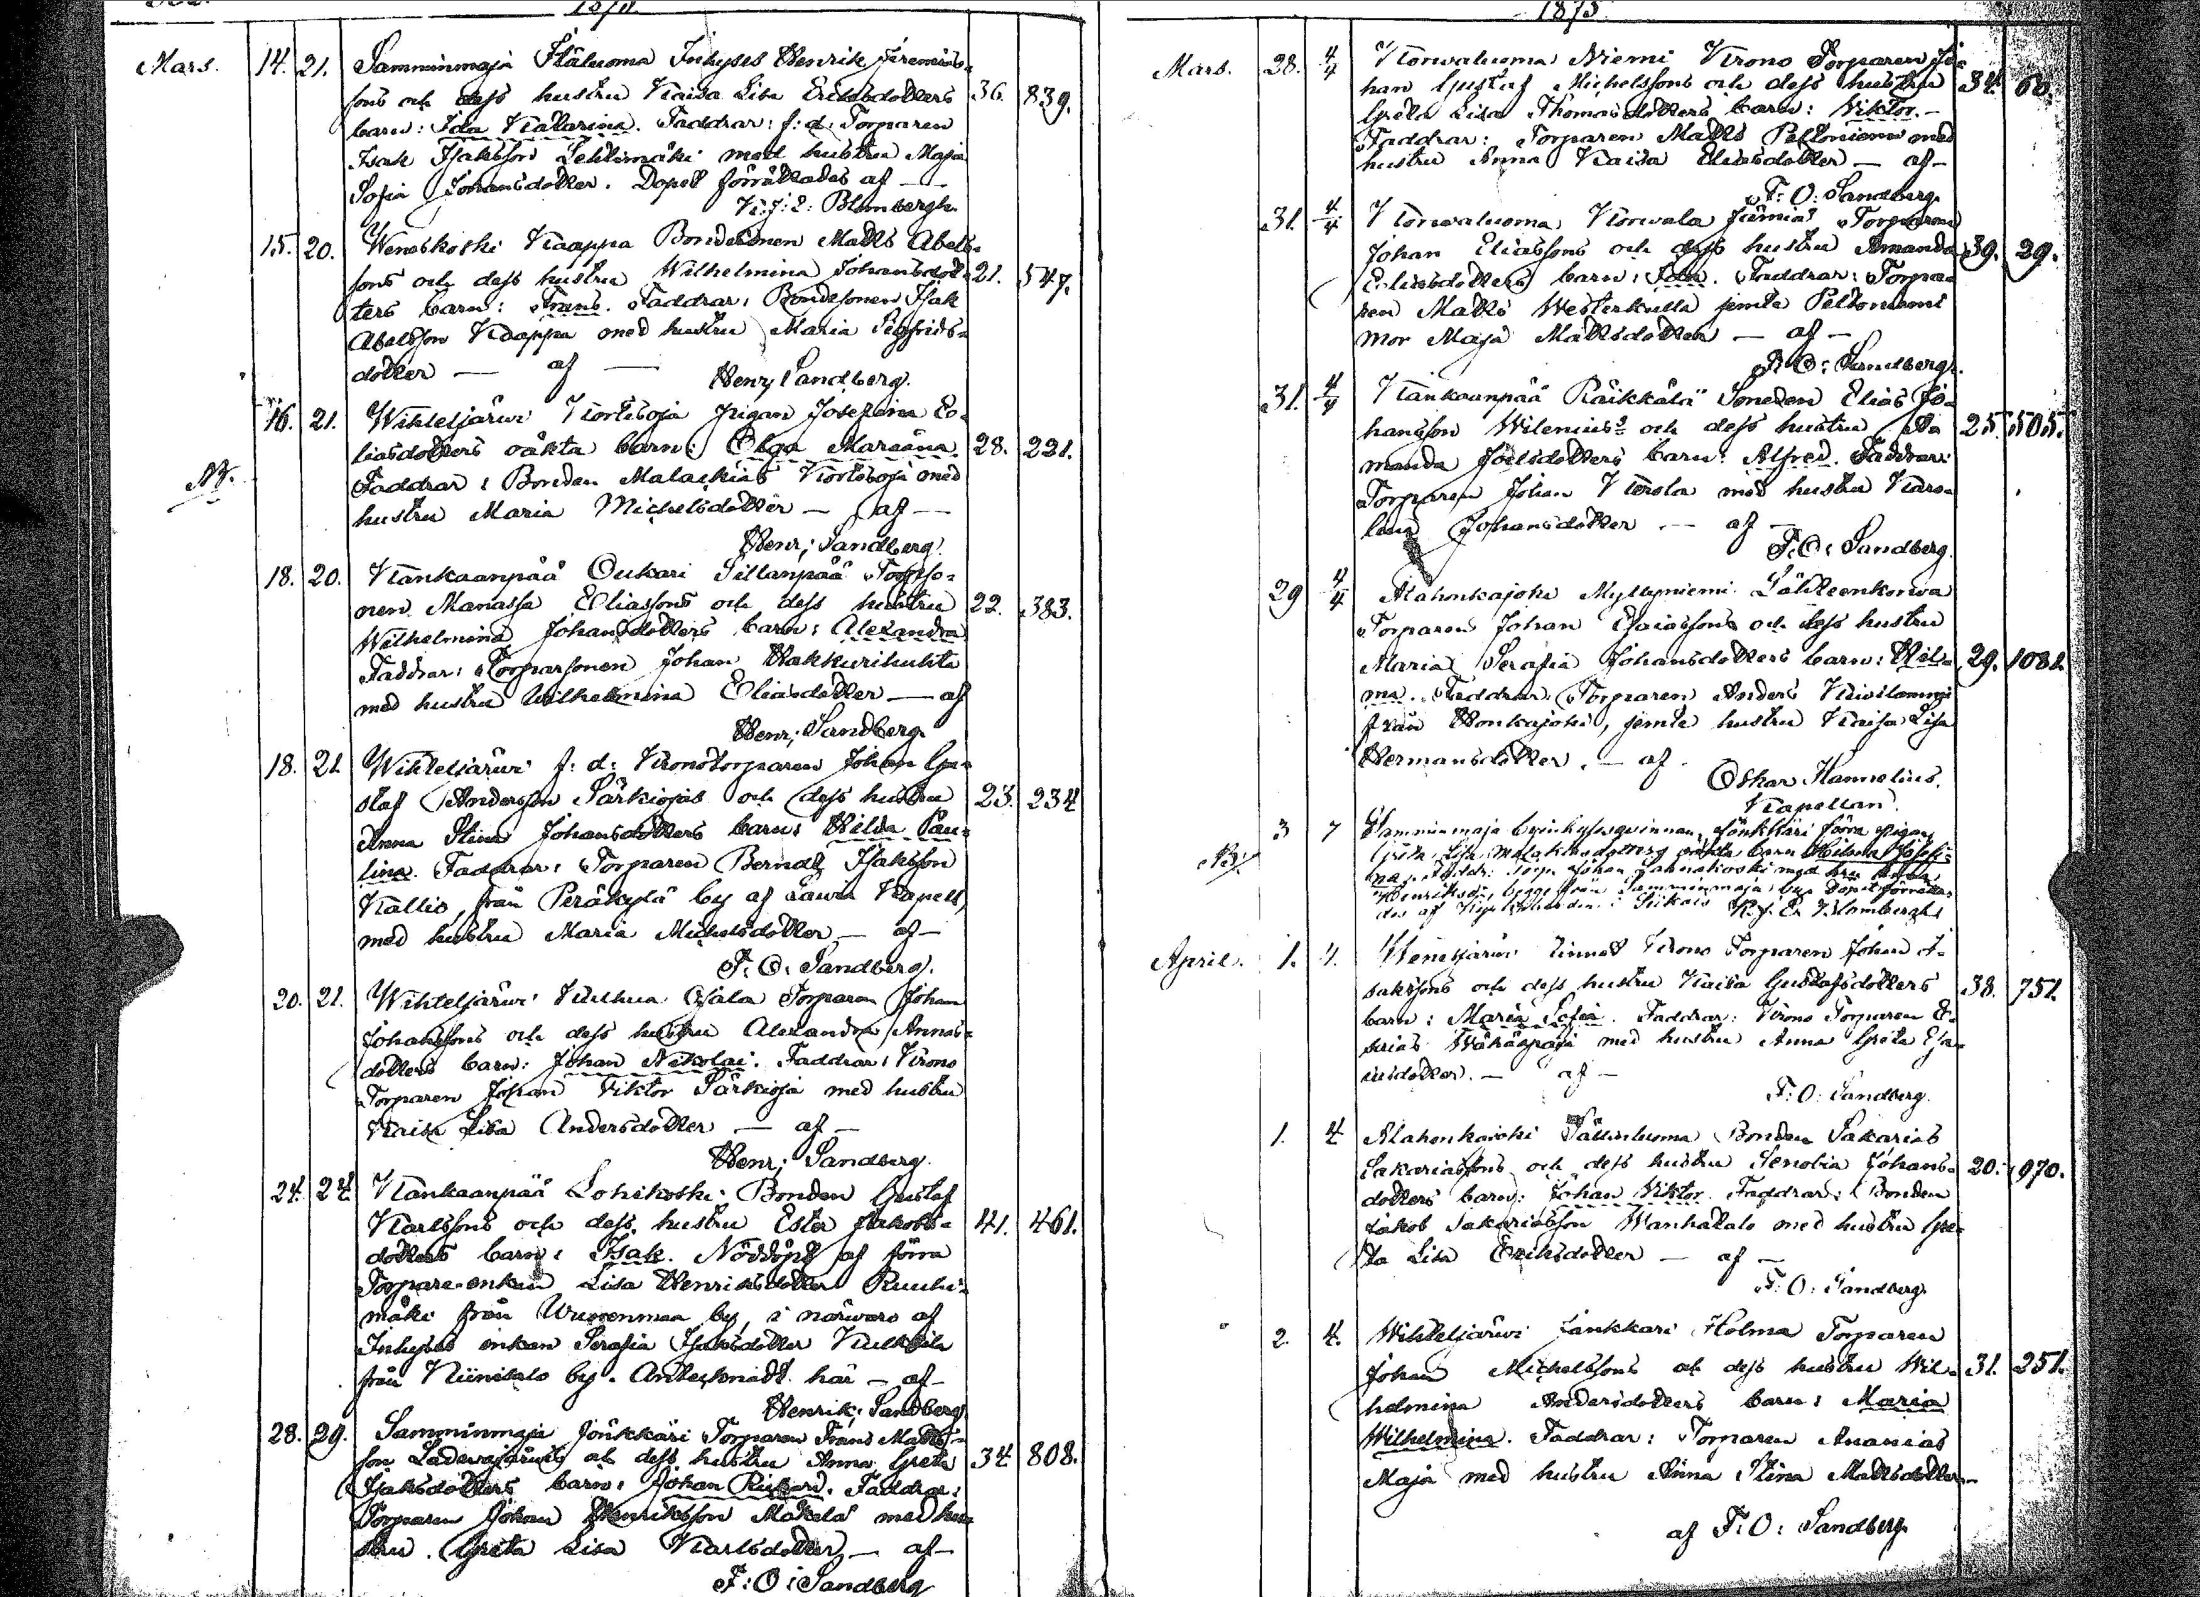 1875.
Mars. 14. 21. Samminmaja Ståluoma Inhyses Henrik Jeremias-
sons och dess hustru Kaisa Lisa Eriksdotters 36. 839.
barn: Ida Katarina. Faddrar: f: d: Torparen
Isak Isaksson Lehtimäki med hustru Maja
Sofia Johansdotter. Dopet förrättades af —
K: J: E: Blombergh.
15. 20. Weneskoski Kaappa Bondesonen Matts Abels-
sons och dess hustru Wilhelmina Johansdot- 21. 547.
ters barn: Frans. Faddrar: Bondesonen Isak
Abelsson Kaappa med hustru Maria Sigfrids-
dotter — af —
Henr; Sandberg.
16. 21. Wihteljärwi Kortesoja Pigan Josefina E-
liasdotters oäkta barn: Olga Mariana. 28. 221.
Faddrar: Bonden Malackias Kortesoja med
hustru Maria Michelsdotter — af —
Henr; Sandberg.
18. 20. Kankaanpää Oukari Sillanpää Torpso-
nen Manassa Eliassons och dess hustru 22. 383.
Wilhelmina Johansdotters barn: Alexandra
Faddrar: Torparsonen Johan Hakkurihuhta
med hustru Wilhelmina Eliasdotter — af
Henr; Sandberg.
18. 21. Wihteljärwi f: d: Kronotorparen Johan Gu-
staf Andersson Särkiojas och dess hustru 23. 234
Anna Stina Johansdotters barn: Hilda Pau-
lina. Faddrar: Torparen Berndt Isaksson
Kallio, från Peräkylä by af Lawia Kapell,
med hustru Maria Michelsdotter — af —
F: O: Sandberg.
20. 21. Wihteljärwi Ojala Torparen Johan
Johanssons och dess hustru Alexandra Annas-
dotters barn: Johan Nikolai. Faddrar: Krono
Torparen Johan Viktor Särkioja med hustru
Kaisa Lisa Andersdotter — af —
Henr; Sandberg.
24. 24. Kankaanpää Lohikoski Bonden Gustaf
Karlssons och dess hustru Ester Jakobs- 41. 461.
dotters barn: Isak. Nöddöpt af förra
Torpare-enkan Lisa Henriksdotter Ruuhi-
mäki från Wuorenmaa by, i närwaro af
Inhyses enkan Serafia Isaksdotter Kulkkila
från Niinisalo by. Antecknadt här — af —
Henrik; Sandberg
28. 29. Samminmaja Jönkkäri Torparen Frans Matts-
son Ladewajärwis och dess hustru Anna Greta 34. 808.
Isaksdotters barn: Johan Rikard. Faddrar:
Torparen Johan Henriksson Mäkelä med hu-
stru Greta Lisa Karlsdotter — af —
F: O: Sandberg
1875
Mars. 28. 4/4 Korwaluoma Niemi Krono Torparen Jo-
han Gustaf Michelssons och dess hustru 34. 60.
Greta Lisa Thomasdotters barn: Viktor. —
Faddrar: Torparen Matts Peltoniemi med
hustru Anna Kaisa Eliasdotter — af —
F: O: Sandberg.
31. 4/4 Korwaluoma Korwala Torparen
Johan Eliassons och dess hustru Amanda 39. 29.
Eliasdotters barn: Faddrar: Torpa-
ren Matts Westerkulla jemte Peltoniemi
mor Maja Mattsdotter — af —
F: O: Sandberg.
31. 4/4 Kankaanpää Räikkälä Smeden Elias Jo-
hansson Wilenius's och dess hustru A- 25. 505.
manda Joelsdotters barn: Alfred. Faddrar:
Torparen Johan Kerola med hustru Karo-
lina Johansdotter — af —
F: O: Sandberg.
29 4/4 Alahonkajoki Myllyniemi Lähteenkorwa
Torparen Johan Esaiassons och dess hustru
Maria Serafia Johansdotters barn: Hil- 29. 1081.
ma. Faddrar: Torparen Anders Kiwilammi
från Honkajoki, jemte hustru Kaisa Lisa
Hermansdotter. — af
Oskar Hannelius.
Kapellan.
3 7 Samminmaja by Jönkkäri förra pigan
Greta Lisa Malakiasdotters oäkta barn Hilma Josefi-
na. Faddr: Torp. Johan med hru
Henriksd., begge från Samminmaja by. Dopet förrätta-
des af i Siikais K. J. E. Blombergh
April. 1. 4. Wenesjärwi Krono Torparen Johan I-
sakssons och dess hustru Kaisa Gustafsdotters 38. 751.
barn: Maria Sofia. Faddrar: Krono Torparen E-
med hustru Anna Greta Esa-
iasdotter. — af —
F: O: Sandberg.
1. 4 Alahonkajoki Bonden Sakarias
Sakariassons och dess hustru Senobia Johans- 20. 970.
dotters barn: Johan Viktor. Faddrar: Bonden
Jakob Sakariasson Wanhatalo med hustru Gre-
ta Lisa Eriksdotter — af —
F: O: Sandberg
2. 4. Wihteljärwi Jänkkäri Holma Torparen
Johan Michelssons och dess hustru Wil- 31. 251.
helmina Andersdotters barn: Maria
Wilhelmina. Faddrar: Torparen Ananias
Maja med hustru Anna Stina Mattsdotter —
af F: O: Sandberg